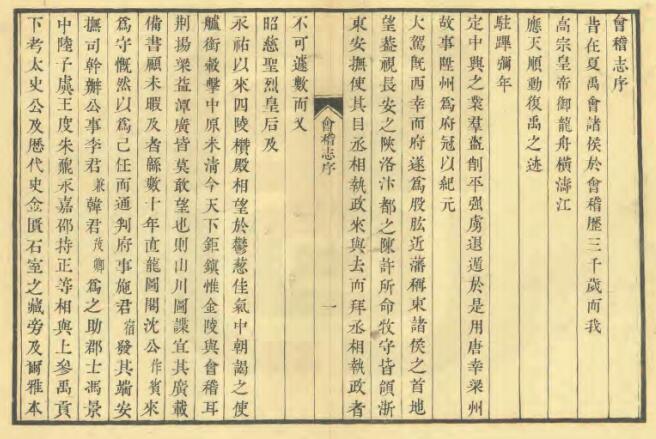 會稽志序
昔在夏禹會諸侯於會稽歷三千歲而我
高宗皇帝御龍舟橫濤江
應天順動復禹之迹
駐蹕彌年
定中興之業羣盜削平強虜退遁於是用唐幸梁州
故事陞州爲府冠以紀元
大駕旣西幸而府遂爲股肱近藩稱東諸侯之首地
望葢視長安之陝洛汴都之陳許所命牧守皆領浙
東安撫使其自丞相執政來與去而拜丞相執政者
會稽志序
一
不可遽數而又
昭慈聖烈皇后及
永祐以來四陵欑殿相望於鬱葱佳氣中朝謁之使
艫銜轂擊中原未清今天下鉅鎭惟金陵與會稽耳
荆揚梁益潭廣皆莫敢望也則山川圖諜宜其廣載
備書顧未暇及者緜數十年直龍圖閣沈公作賓來
爲守慨然以爲己任而通判府事施君宿發其端安
撫司幹辦公事李君兼韓君茂卿爲之助郡士馮景
中陸子虡王度朱鼐永嘉邵持正等相與上參禹貢
下考太史公及歷代史金匱石室之藏旁及爾雅本